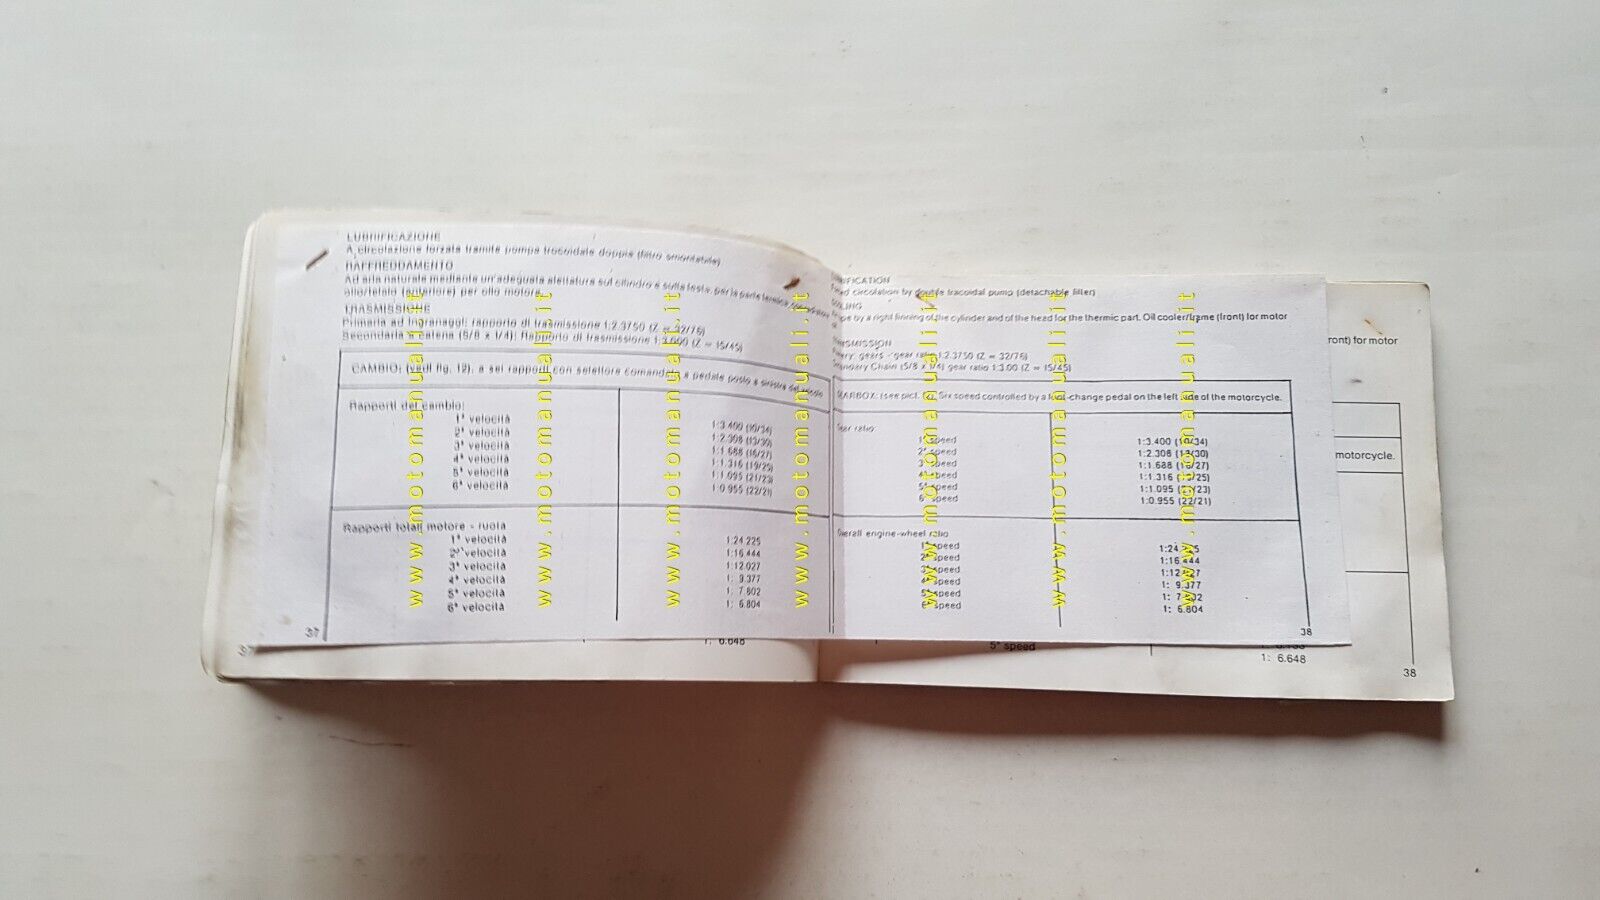 LUBRIFICAZIONE
A circolazione forzata tramite pompa trocoidale doppia (filtro smontabile)
RAFFREDDAMENTO
Ad aria naturale mediante un'adeguata alettatura sul cilindro e sulla testa, per la parte termica
olio/telaio (anteriore) per olio motore.
TRASMISSIONE
Primaria ad ingranaggi: rapporto di trasmissione 1:2.3750 (Z = 32/76)
Secondaria a catena (5/8 x 1/4): Rapporto di trasmissione 1:3.000 (Z = 15/45)
CAMBIO: (vedi fig. 12), a sei rapporti con selettore comandato a pedale posto a sinistra del veicolo
Rapporti del cambio:
1ª velocità 1:3.400 (10/34)
2ª velocità 1:2.308 (13/30)
3ª velocità 1:1.688 (16/27)
4ª velocità 1:1.316 (19/25)
5ª velocità 1:1.095 (21/23)
6ª velocità 1:0.955 (22/21)
Rapporti totali motore - ruota
1ª velocità 1:24.225
2ª velocità 1:16.444
3ª velocità 1:12.027
4ª velocità 1: 9.377
5ª velocità 1: 7.802
6ª velocità 1: 6.804
37
37
1: 6.648
circulation by double tracoidal pump (detachable filter)
by a right finning of the cylinder and of the head for the thermic part. Oil cooler/frame (front) for motor
gears - gear ratio 1:2.3750 (Z = 32/76)
Chain (5/8 x 1/4) gear ratio 1:3.00 (Z = 15/45)
(see pict. Six speed controlled by a foot-change pedal on the left side of the motorcycle.
ratio:
1ª speed 1:3.400 (10/34)
2ª speed 1:2.308 (13/30)
3ª speed 1:1.688 (16/27)
4ª speed 1:1.316 (19/25)
5ª speed 1:1.095 (21/23)
6ª speed 1:0.955 (22/21)
Overall engine-wheel ratio
1ª speed 1:24.225
2ª speed 1:16.444
3ª speed 1:12.027
4ª speed 1: 9.377
5ª speed 1: 7.802
6ª speed 1: 6.804
38
front) for motor
motorcycle.
5ª speed
1: 6.648
38
www.motomanuali.it
www.motomanuali.it
www.motomanuali.it
www.motomanuali.it
www.motomanuali.it
www.motomanuali.it
www.motomanuali.it